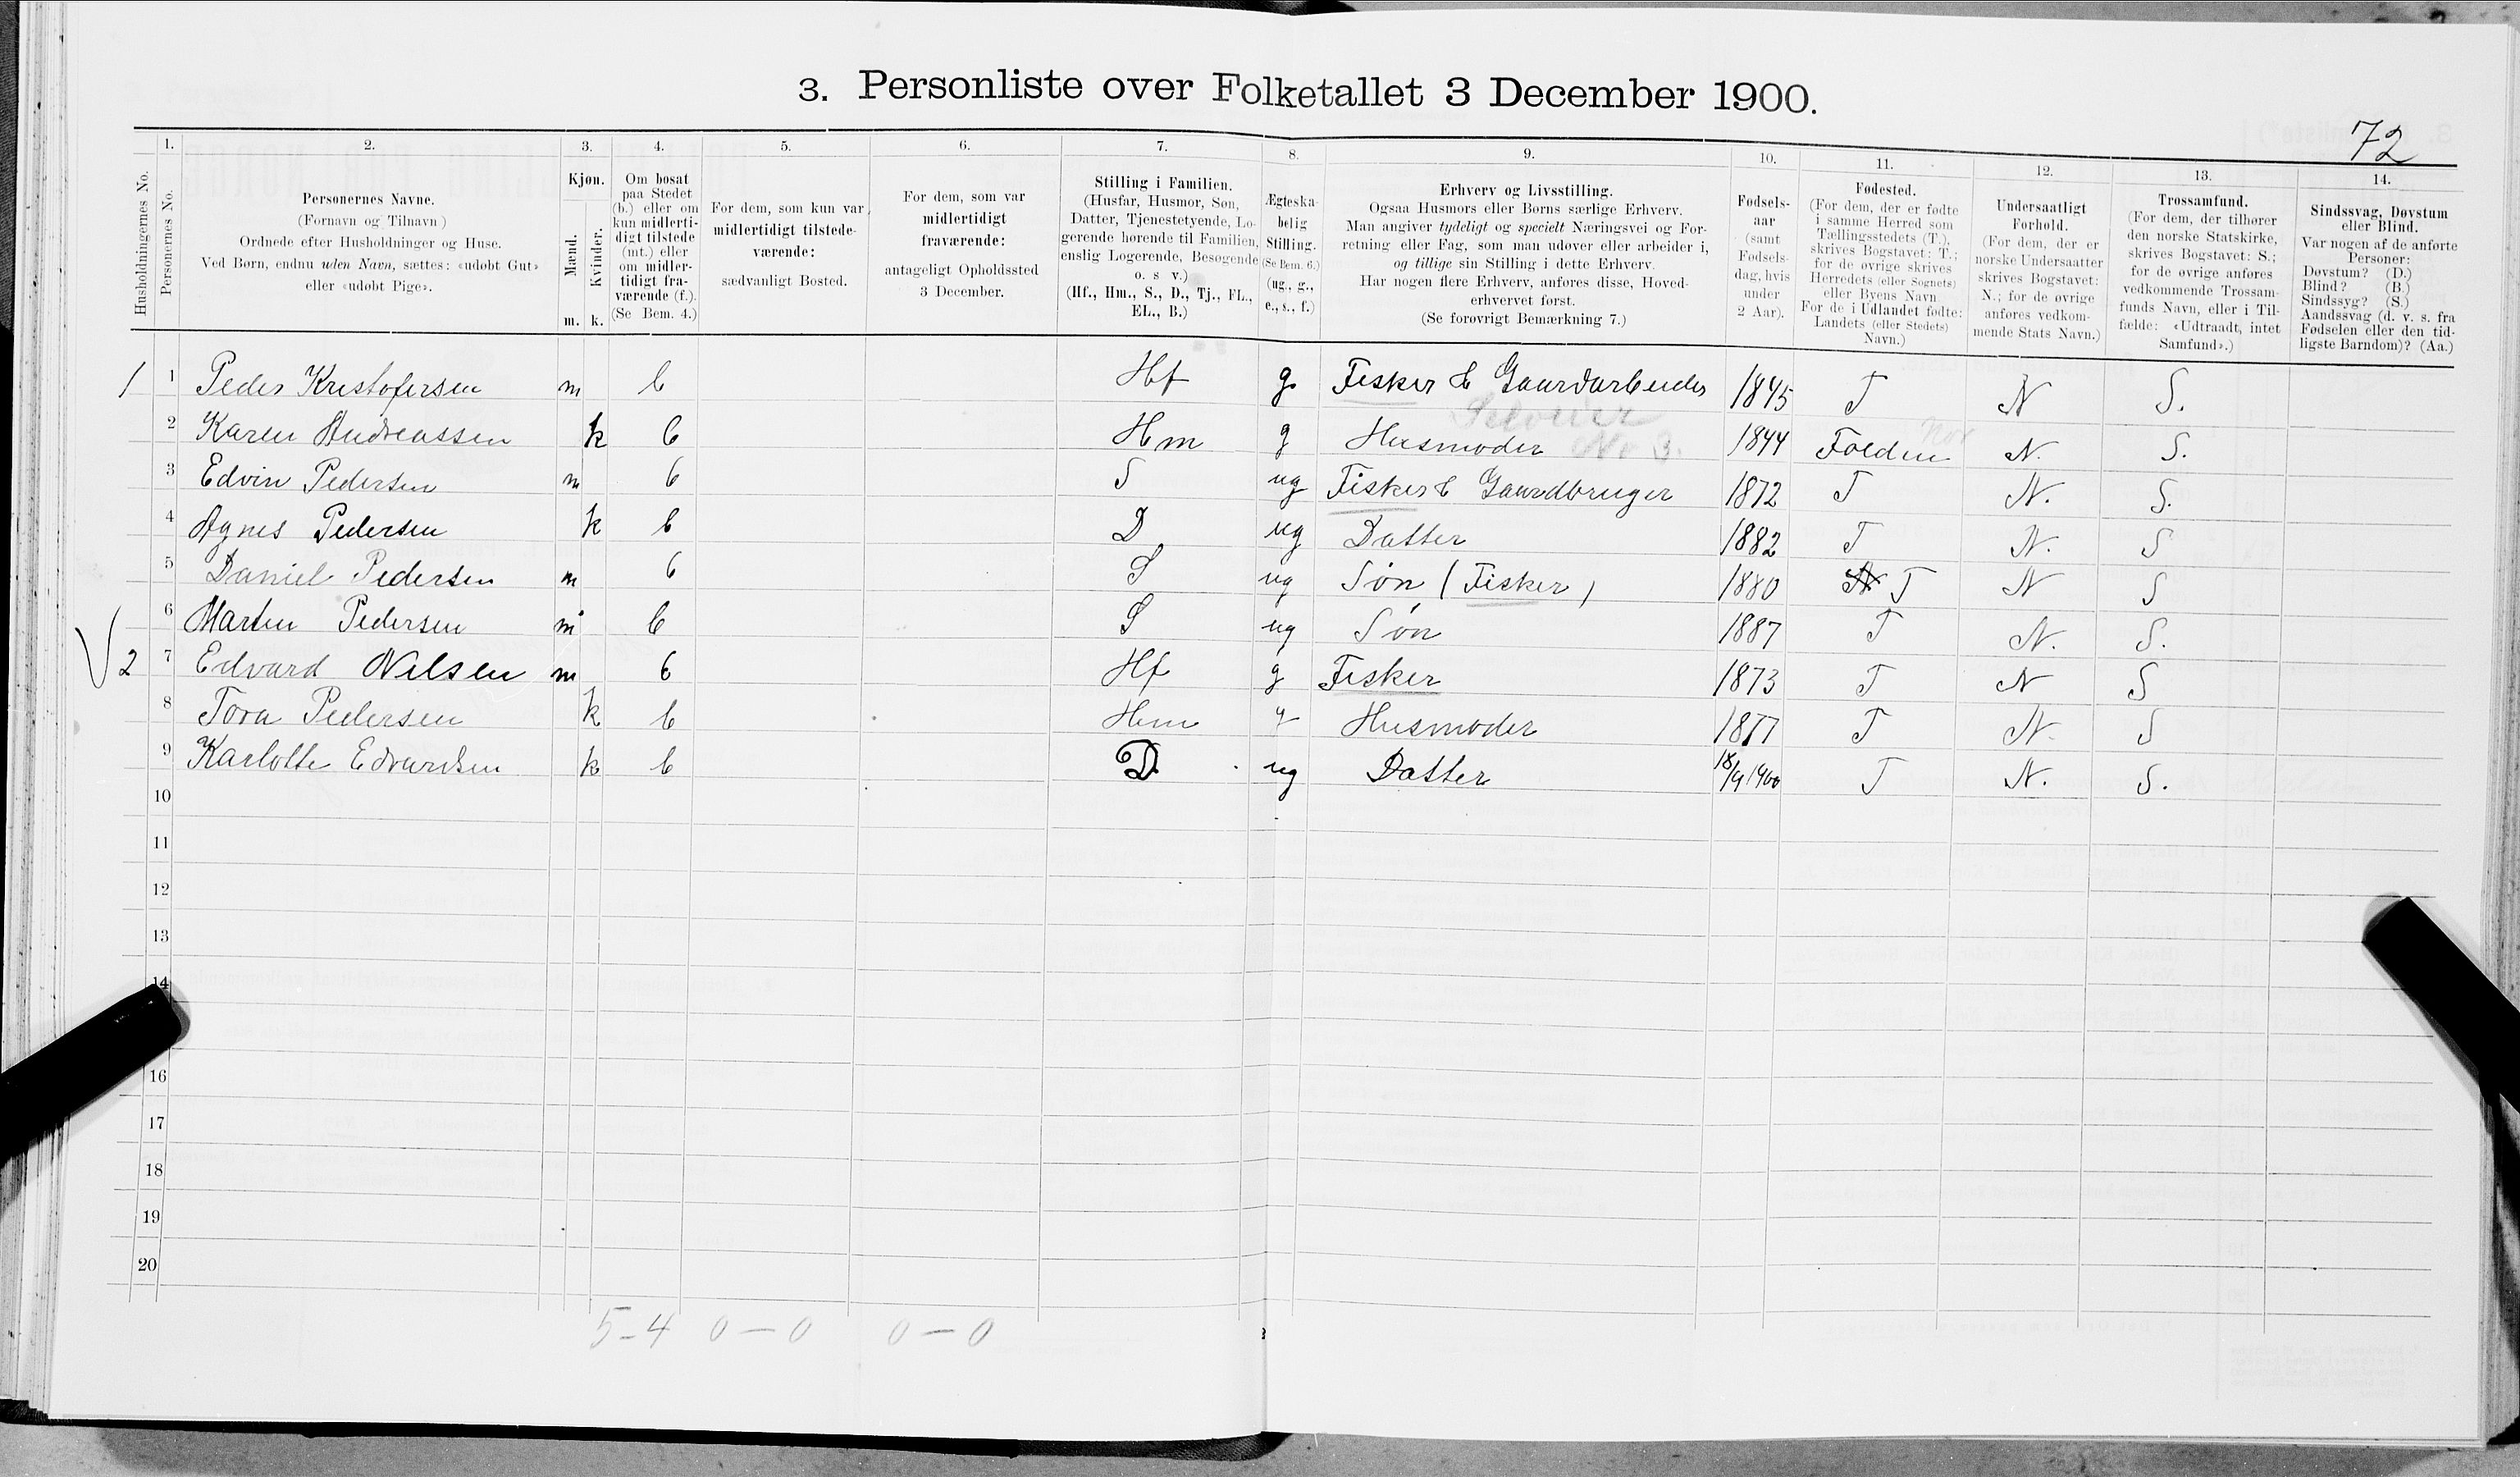 3. Personliste over Folketallet 3 December 1900.
72
1. 2. 3. 4. 5. 6. 7. 8. 9. 10. 11. 12. 13. 14.
Husholdningernes No.
Personernes No.
Personernes Navne.
(Fornavn og Tilnavn)
Ordnede efter Husholdninger og Huse.
Ved Børn, endnu uden Navn, sættes: «udøbt Gut»
eller «udøbt Pige».
Kjøn.
Mænd.
Kvinder.
m. k.
Om bosat
paa Stedet
(b.) eller om
kun midlerti-
digt tilstede
(mt.) eller
om midler-
tidigt fra-
værende (f.).
(Se Bem. 4.)
For dem, som kun var
midlertidigt tilstede-
værende:
sædvanligt Bosted.
For dem, som var
midlertidigt
fraværende:
antageligt Opholdssted
3 December.
Stilling i Familien.
(Husfar, Husmor, Søn,
Datter, Tjenestetyende, Lo-
gerende hørende til Familien,
enslig Logerende, Besøgende
o. s v.)
(Hf., Hm., S., D., Tj., FL.,
EL., B.)
Ægteska-
belig
Stilling.
(Se Bem. 6.)
(ug., g.,
e., s., f.)
Erhverv og Livsstilling.
Ogsaa Husmors eller Børns særlige Erhverv.
Man angiver tydeligt og specielt Næringsvei og For-
retning eller Fag, som man udøver eller arbeider i,
og tillige sin Stilling i dette Erhverv.
Har nogen flere Erhverv, anføres disse, Hoved-
erhvervet først.
(Se forøvrigt Bemærkning 7.)
Fødsels-
aar
(samt
Fødsels-
dag, hvis
under
2 Aar).
Fødested.
(For dem, der er fødte
i samme Herred som
Tællingsstedets (T.),
skrives Bogstavet: T.;
for de øvrige skrives
Herredets (eller Sognets)
eller Byens Navn.
For de i Udlandet fødte:
Landets (eller Stedets)
Navn.)
Undersaatligt
Forhold.
(For dem, der er
norske Undersaatter
skrives Bogstavet:
N.; for de øvrige
anføres vedkom-
mende Stats Navn.)
Trossamfund.
(For dem, der tilhører
den norske Statskirke,
skrives Bogstavet: S.;
for de øvrige anføres
vedkommende Trossam-
funds Navn, eller i Til-
fælde: «Udtraadt, intet
Samfund».)
Sindssvag, Døvstum
eller Blind.
Var nogen af de anførte
Personer:
Døvstum? (D.)
Blind? (B.)
Sindssyg? (S.)
Aandssvag (d. v. s. fra
Fødselen eller den tid-
ligste Barndom)? (Aa.)
1 1 Peder Kristofersen m b Hf g Fisker & Gaardarbeider 1845 T N S.
2 Karen Andreassen k b Hm g Husmoder No 3. 1844 Folden Nor N. S.
3 Edvin Pedersen m b S ug Fisker & Gaardbruger 1872 T N. S.
4 Agnes Pedersen k b D ug Datter 1882 T N. S
5 Daniel Pedersen m b S ug Søn (Fisker) 1880 N T N S
6 Martin Pedersen m b S ug Søn 1887 T N. S.
2 7 Edvard Nilsen m b Hf g Fisker 1873 T N S
8 Tora Pedersen k b Hm g Husmoder 1877 T N. S
9 Karlotte Edvardsen k b D. ug Datter 18/9 1900 T N. S.
10
11
12
13
14
16
17
18
19
20
5-4 0-0 0-0